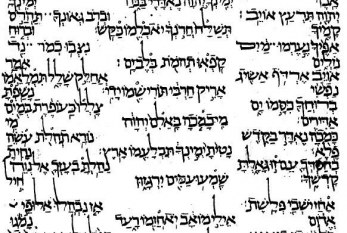 יהוה תרעץ אויב וברב גאונך תהרס
קמיך תשלח חרנך יאכלמו כקש וברוח
אפיך נערמו מים נצבו כמו נד
נזלים קפאו תהמת בלב ים אמר
אויב ארדף אשיג אחלק שלל תמלאמו
נפשי אריק חרבי תורישמו ידי נשפת
ברוחך כסמו ים צללו כעופרת במים
אדירים מי כמכה באלם יהוה מי
כמכה נאדר בקדש נורא תהלת עשה
פלא נטית ימינך תבלעמו ארץ נחית
בחסדך עם זו גאלת נהלת בעזך אל נוה
קדשך שמעו עמים ירגזון חיל
אחז ישבי פלשת אז נבהלו אלופי
אדום אילי מואב יאחזמו רעד נמגו